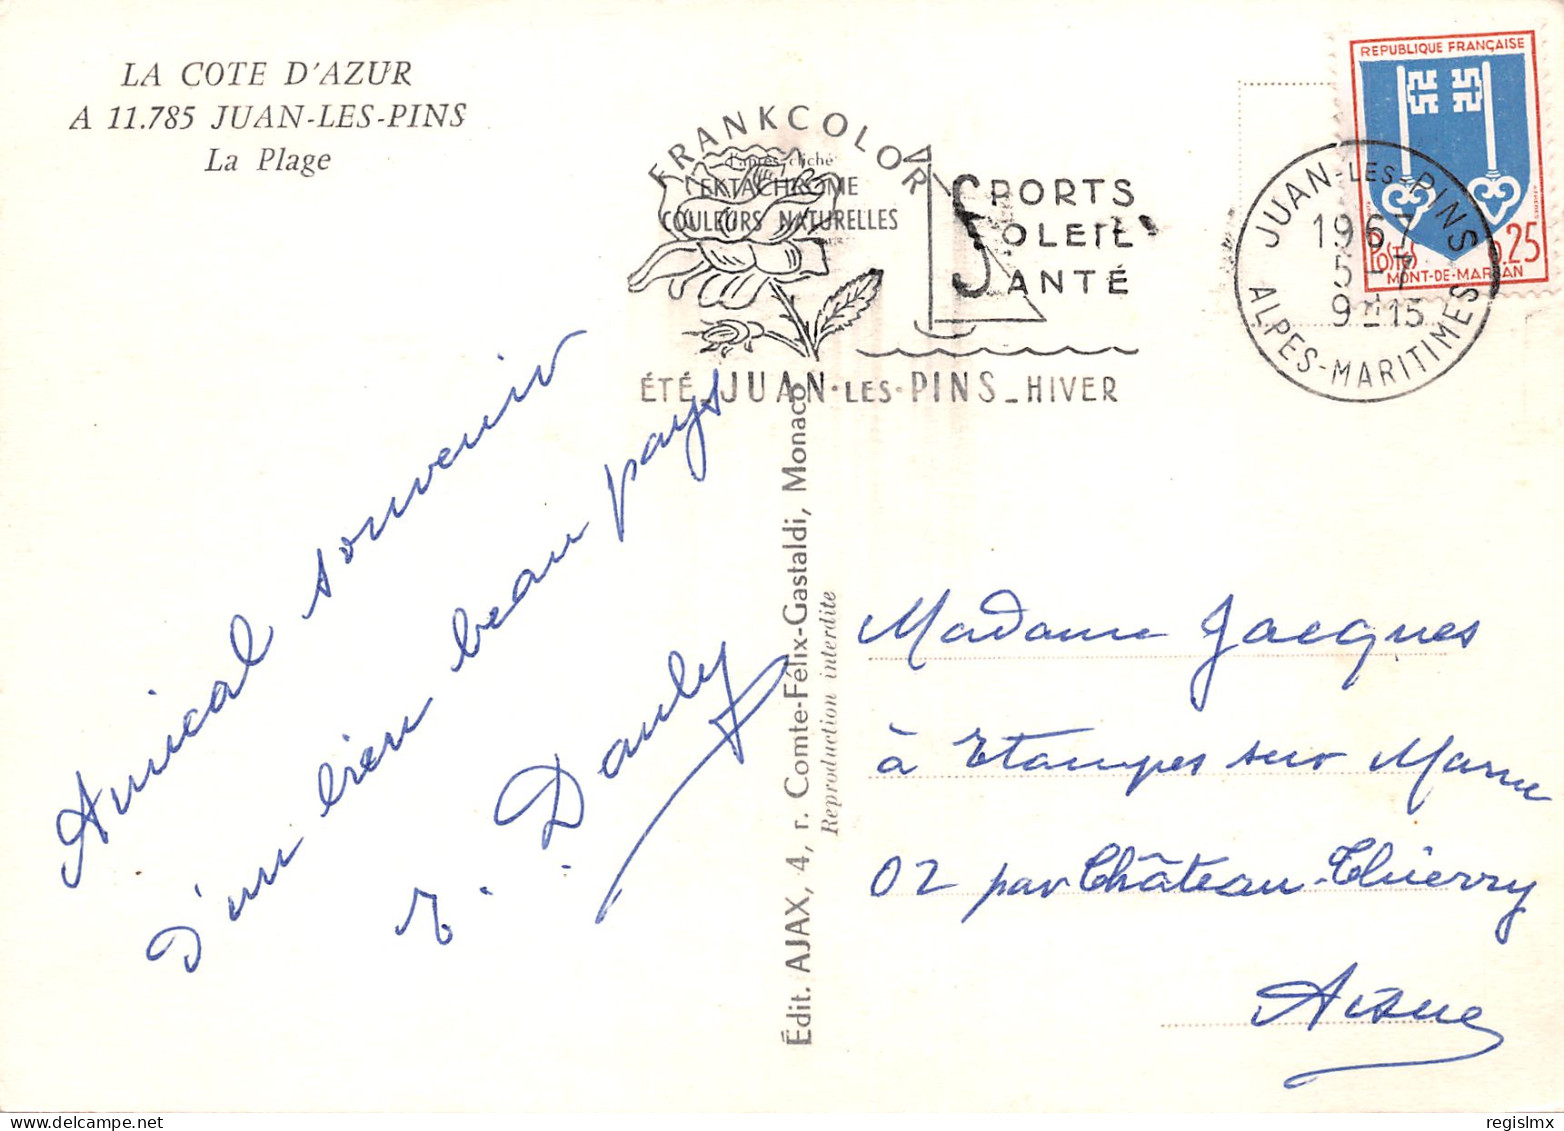 LA COTE D'AZUR
A 11.785 JUAN-LES-PINS
La Plage
FRANKCOLOR
d'après cliché
EKTACHROME
COULEURS NATURELLES
SPORTS
SOLEIL
SANTÉ
ÉTÉ_JUAN·LES·PINS_HIVER
REPUBLIQUE FRANÇAISE
POSTES 0,25
MONT-DE-MARSAN
JUAN-LES-PINS
1967
5-7
9H15
ALPES-MARITIMES
Amical souvenir
d'un bien beau pays
Édit. AJAX, 4, r. Comte-Félix-Gastaldi, Monaco
Reproduction interdite
Madame Jacques
à Etampes sur Marne
02 par Château-Thierry
Aisne
regislmx